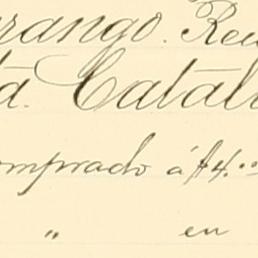 urango. Rec
ta. Catali
omprado á $4.00
" en